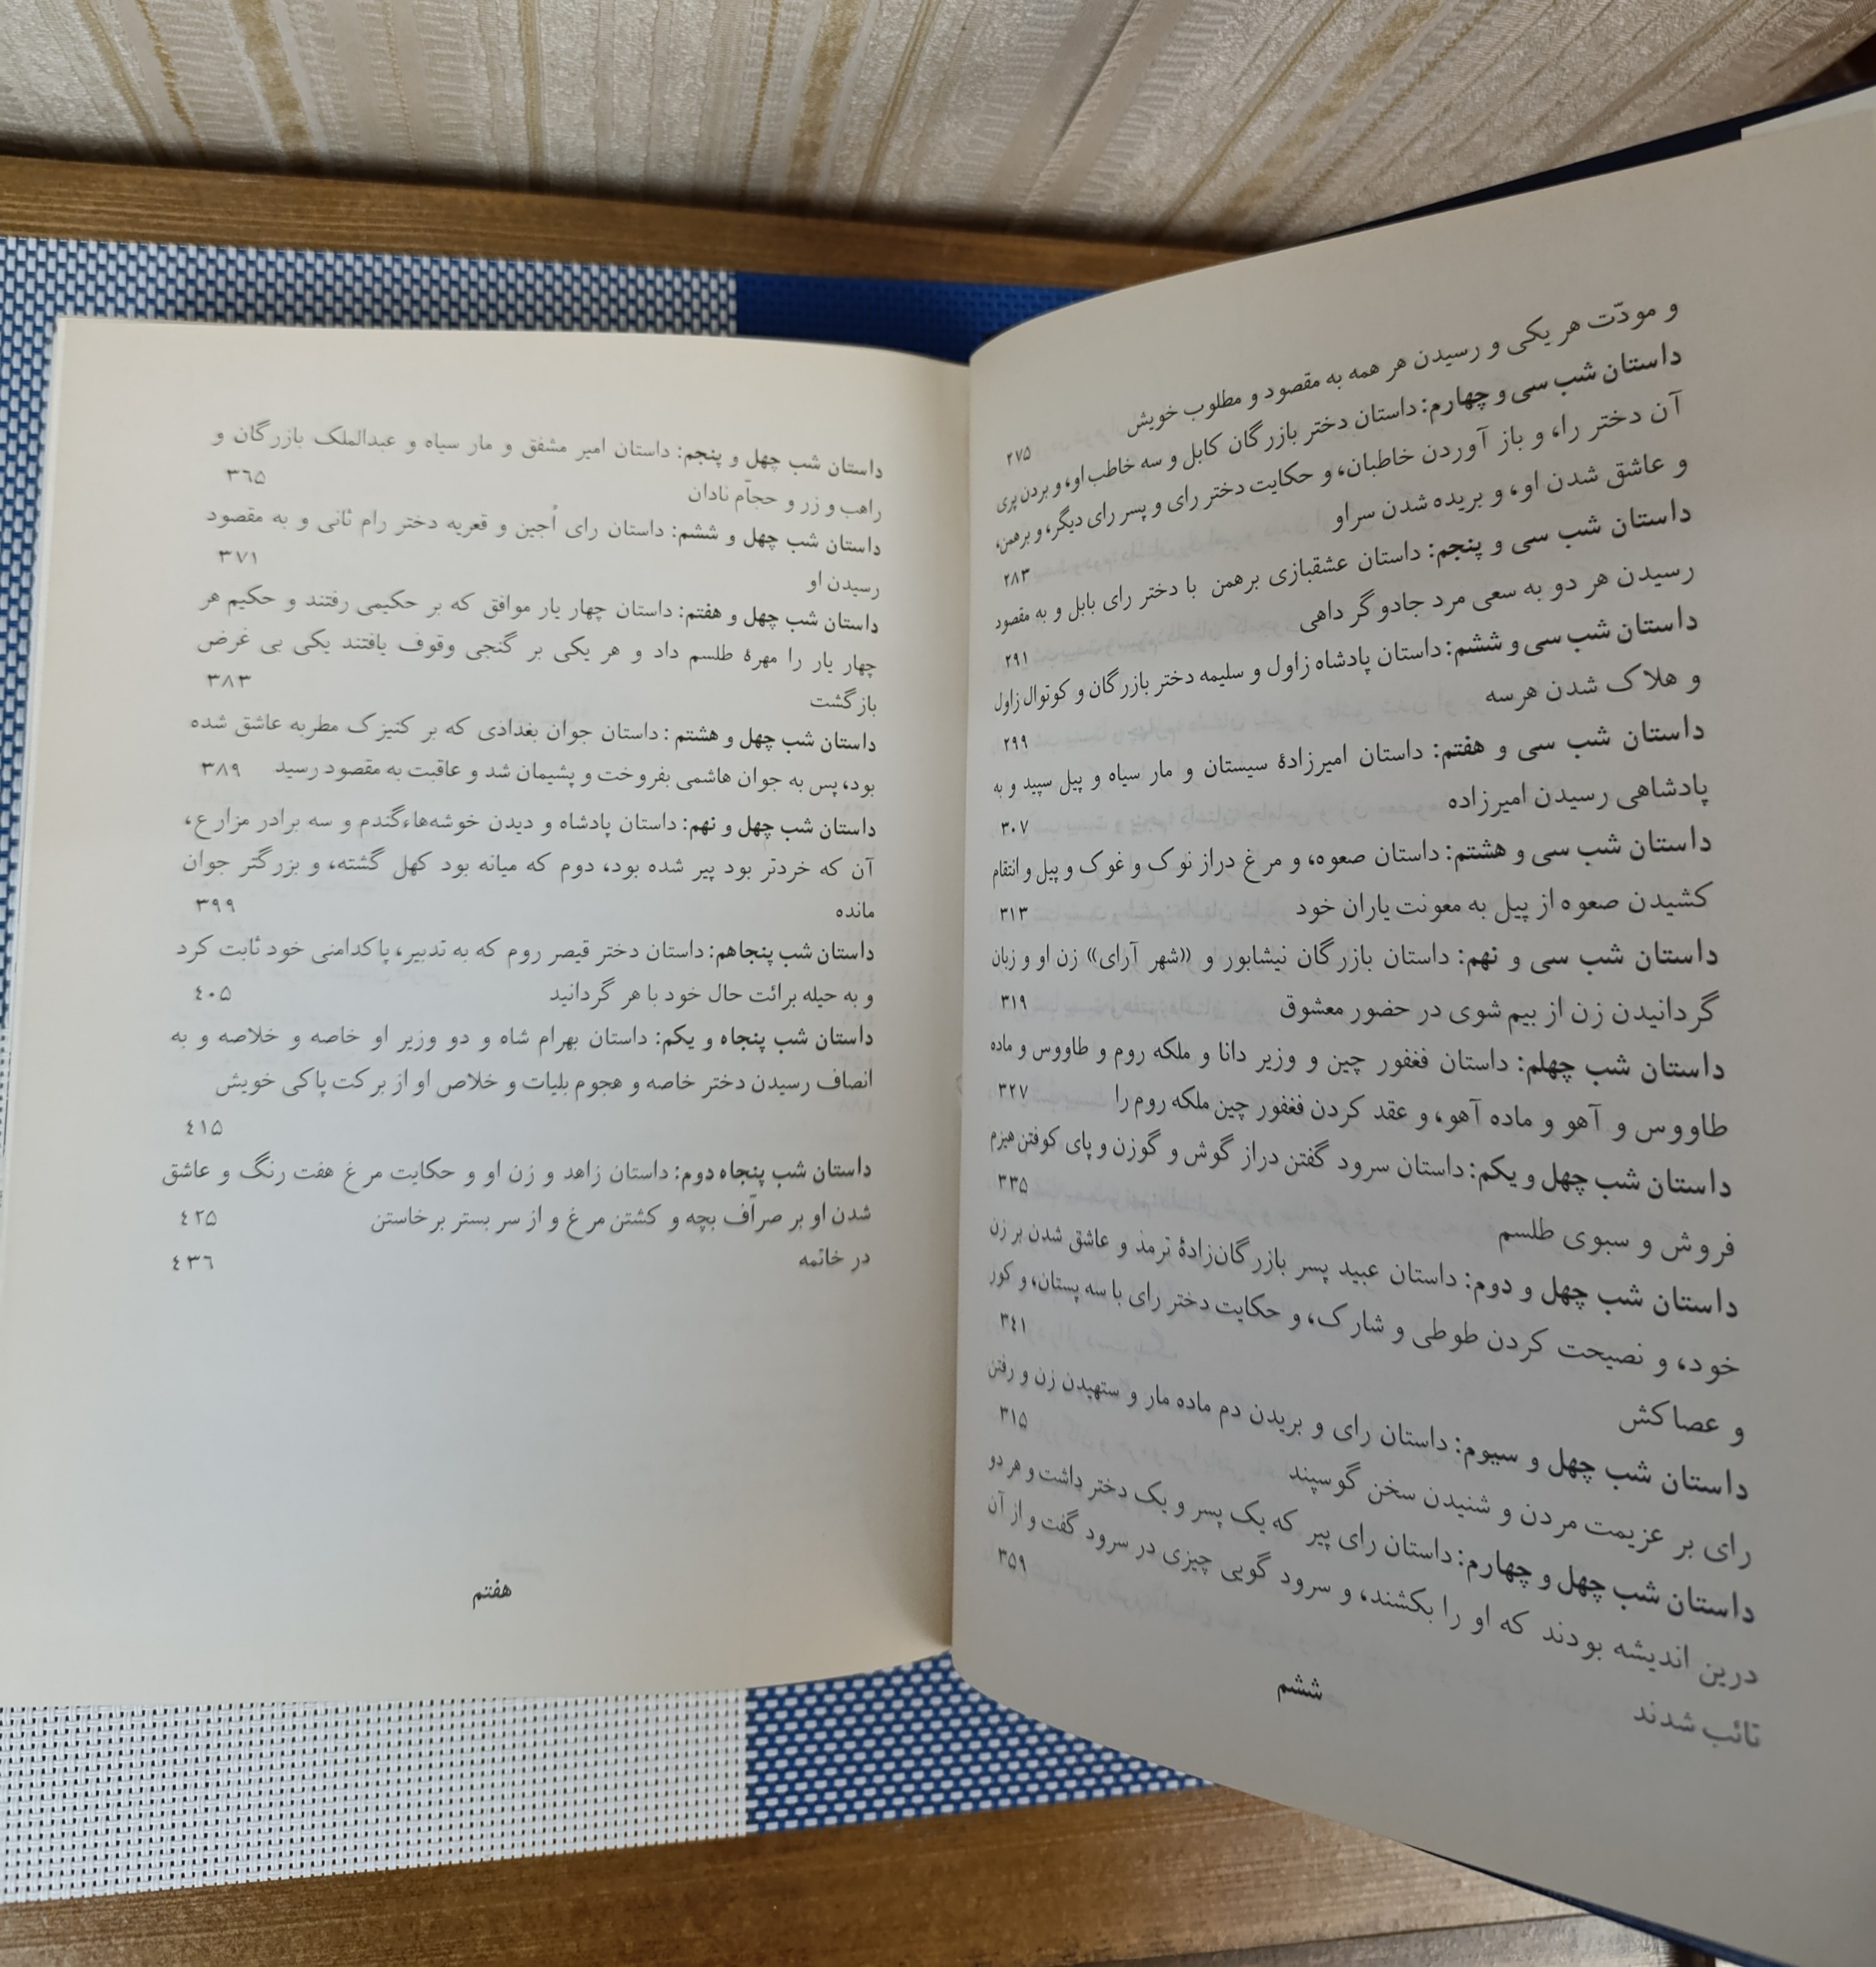 و مودّت هر یکی و رسیدن هر همه به مقصود و مطلوب خویش ۲۷۵
داستان شب سی و چهارم: داستان دختر بازرگان کابل و سه خاطب او، و بردن پری
آن دختر را، و باز آوردن خاطبان، و حکایت دختر رای و پسر رای دیگر، و برهمن،
و عاشق شدن او، و بریده شدن سر او ۲۸۳
داستان شب سی و پنجم: داستان عشقبازی برهمن با دختر رای بابل و به مقصود
رسیدن هر دو به سعی مرد جادوگر داهی ۲۹۱
داستان شب سی و ششم: داستان پادشاه زاول و سلیمه دختر بازرگان و کوتوال زاول
و هلاک شدن هرسه ۲۹۹
داستان شب سی و هفتم: داستان امیرزادهٔ سیستان و مار سیاه و پیل سپید و به
پادشاهی رسیدن امیرزاده ۳۰۷
داستان شب سی و هشتم: داستان صعوه، و مرغ دراز نوک و غوک و پیل و انتقام
کشیدن صعوه از پیل به معونت یاران خود ۳۱۳
داستان شب سی و نهم: داستان بازرگان نیشابور و «شهر آرای» زن او و زبان
گردانیدن زن از بیم شوی در حضور معشوق ۳۱۹
داستان شب چهلم: داستان فغفور چین و وزیر دانا و ملکه روم و طاووس و ماده
طاووس و آهو و ماده آهو، و عقد کردن فغفور چین ملکه روم را ۳۲۷
داستان شب چهل و یکم: داستان سرود گفتن دراز گوش و گوزن و پای کوفتن هیزم
فروش و سبوی طلسم ۳۳۵
داستان شب چهل و دوم: داستان عبید پسر بازرگان‌زادهٔ ترمذ و عاشق شدن بر زن
خود، و نصیحت کردن طوطی و شارک، و حکایت دختر رای با سه پستان، و کوز
و عصاکش ۳٤۱
داستان شب چهل و سیوم: داستان رای و بریدن دم ماده مار و ستهیدن زن و رفتن
رای بر عزیمت مردن و شنیدن سخن گوسپند ۳۱۵
داستان شب چهل و چهارم: داستان رای پیر که یک پسر و یک دختر داشت و هر دو
درین اندیشه بودند که او را بکشند، و سرود گویی چیزی در سرود گفت و از آن
تائب شدند ۳۵۹
ششم
داستان شب چهل و پنجم: داستان امیر مشفق و مار سیاه و عبدالملک بازرگان و
راهب و زر و حجاّم نادان ۳٦۵
داستان شب چهل و ششم: داستان رای اُجین و قعریه دختر رام ثانی و به مقصود
رسیدن او ۳۷۱
داستان شب چهل و هفتم: داستان چهار یار موافق که بر حکیمی رفتند و حکیم هر
چهار یار را مهرهٔ طلسم داد و هر یکی بر گنجی وقوف یافتند یکی بی غرض
بازگشت ۳۸۳
داستان شب چهل و هشتم : داستان جوان بغدادی که بر کنیزک مطربه عاشق شده
بود، پس به جوان هاشمی بفروخت و پشیمان شد و عاقبت به مقصود رسید ۳۸۹
داستان شب چهل و نهم: داستان پادشاه و دیدن خوشه‌هاءگندم و سه برادر مزارع،
آن که خردتر بود پیر شده بود، دوم که میانه بود کهل گشته، و بزرگتر جوان
مانده ۳۹۹
داستان شب پنجاهم: داستان دختر قیصر روم که به تدبیر، پاکدامنی خود ثابت کرد
و به حیله برائت حال خود با هر گردانید ٤۰۵
داستان شب پنجاه و یکم: داستان بهرام شاه و دو وزیر او خاصه و خلاصه و به
انصاف رسیدن دختر خاصه و هجوم بلیات و خلاص او از برکت پاکی خویش
٤۱۵
داستان شب پنجاه دوم: داستان زاهد و زن او و حکایت مرغ هفت رنگ و عاشق
شدن او بر صرآّف بچه و کشتن مرغ و از سر بستر برخاستن ٤۲۵
در خاتمه ٤۳٦
هفتم